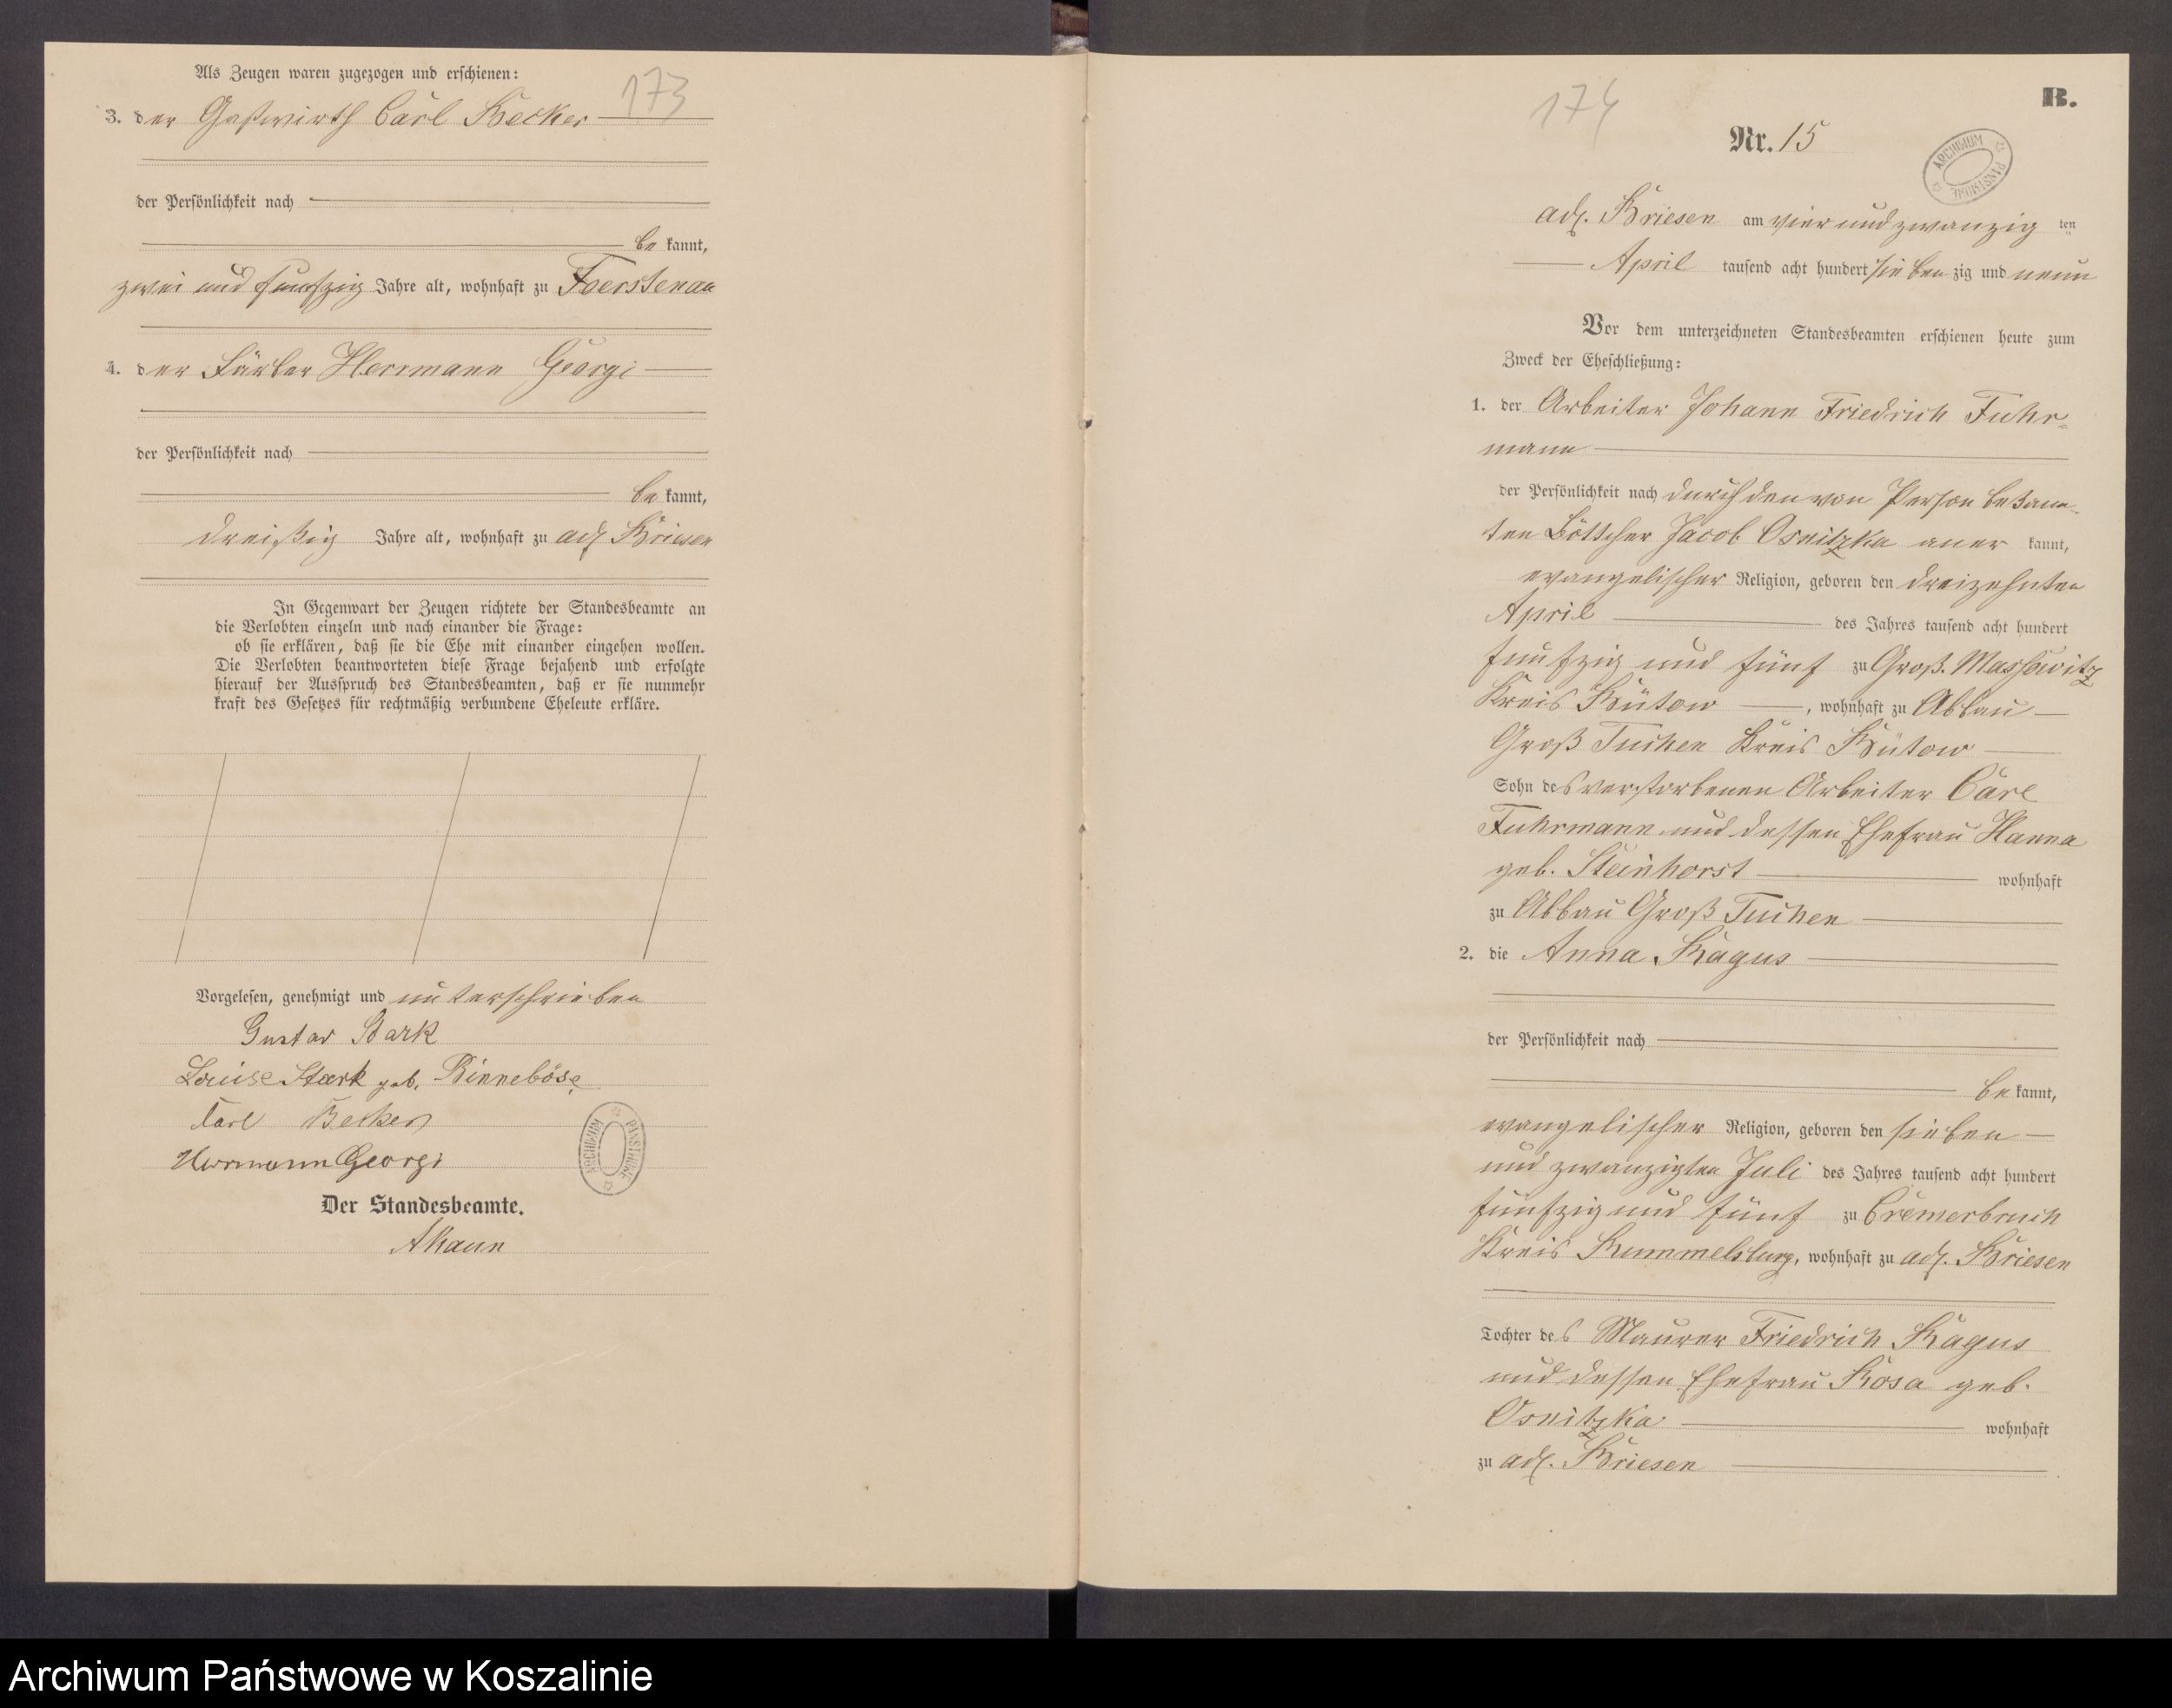 Als Zeugen waren zugezogen und erschienen:
173
3. der Gastwirth Carl Becker
der Persönlichkeit nach
be kannt,
zwei und funfzig Jahre alt, wohnhaft zu Foerstenau
4. der Färber Herrmann Georgi
der Persönlichkeit nach
be kannt,
dreißig Jahre alt, wohnhaft zu adl Briesen
In Gegenwart der Zeugen richtete der Standesbeamte an
die Verlobten einzeln und nach einander die Frage:
ob sie erklären, daß sie die Ehe mit einander eingehen wollen.
Die Verlobten beantworteten diese Frage bejahend und erfolgte
hierauf der Ausspruch des Standesbeamten, daß er sie nunmehr
kraft des Gesetzes für rechtmäßig verbundene Eheleute erkläre.
Vorgelesen, genehmigt und unterschrieben
Gustav Stark
Louise Stark geb. Binneböse
Carl Becker
Herrmann Georgi
ARCHIWUM PAŃSTWOWE
Der Standesbeamte.
B.
174
Nr. 15
ARCHIWUM PAŃSTWOWE
adl. Briesen am vier und zwanzig ten
April tausend acht hundert sieben zig und neun
Vor dem unterzeichneten Standesbeamten erschienen heute zum
Zweck der Eheschließung:
1. der Arbeiter Johann Friedrich Fuhr-
mann
der Persönlichkeit nach durch den von Person bekann-
ten Böttcher Jacob Osnitzka aner kannt,
evangelischer Religion, geboren den dreizehnten
April des Jahres tausend acht hundert
funfzig und fünf zu Groß. Massowitz
Kreis Bütow, wohnhaft zu Abbau
Groß Tuchen Kreis Bütow
Sohn des verstorbenen Arbeiter Carl
Fuhrmann und dessen Ehefrau Hanna
geb. Steinhorst wohnhaft
zu Abbau Groß Tuchen
2. die Anna Ragus
der Persönlichkeit nach
be kannt,
evangelischer Religion, geboren den sieben
und zwanzigten Juli des Jahres tausend acht hundert
funfzig und fünf zu Cremerbruch
Kreis Rummelsburg, wohnhaft zu adl. Briesen
Tochter des Maurer Friedrich Ragus
und dessen Ehefrau Rosa geb.
Osnitzka wohnhaft
zu adl. Briesen
Archiwum Państwowe w Koszalinie